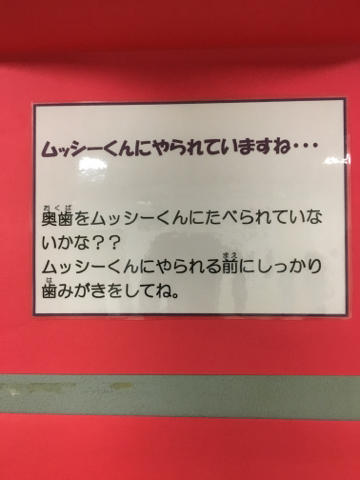 ムッシーくんにやられていますね・・・
奥歯をムッシーくんにたべられていな
いかな？？
ムッシーくんにやられる前にしっかり
歯みがきをしてね。